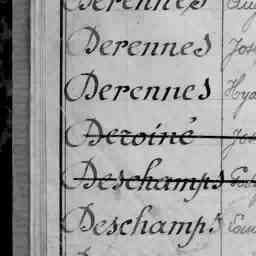 Derennes
Derennes Jos
Derennes Hya
Deroiné Jos
Deschamps
Deschamps